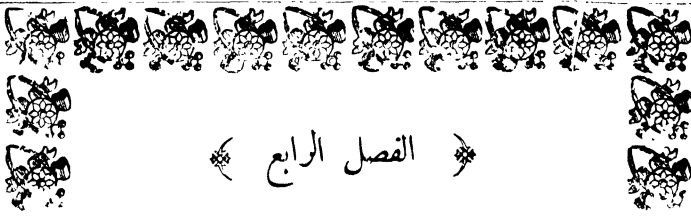 ﴿ الفصل الرابع ﴾